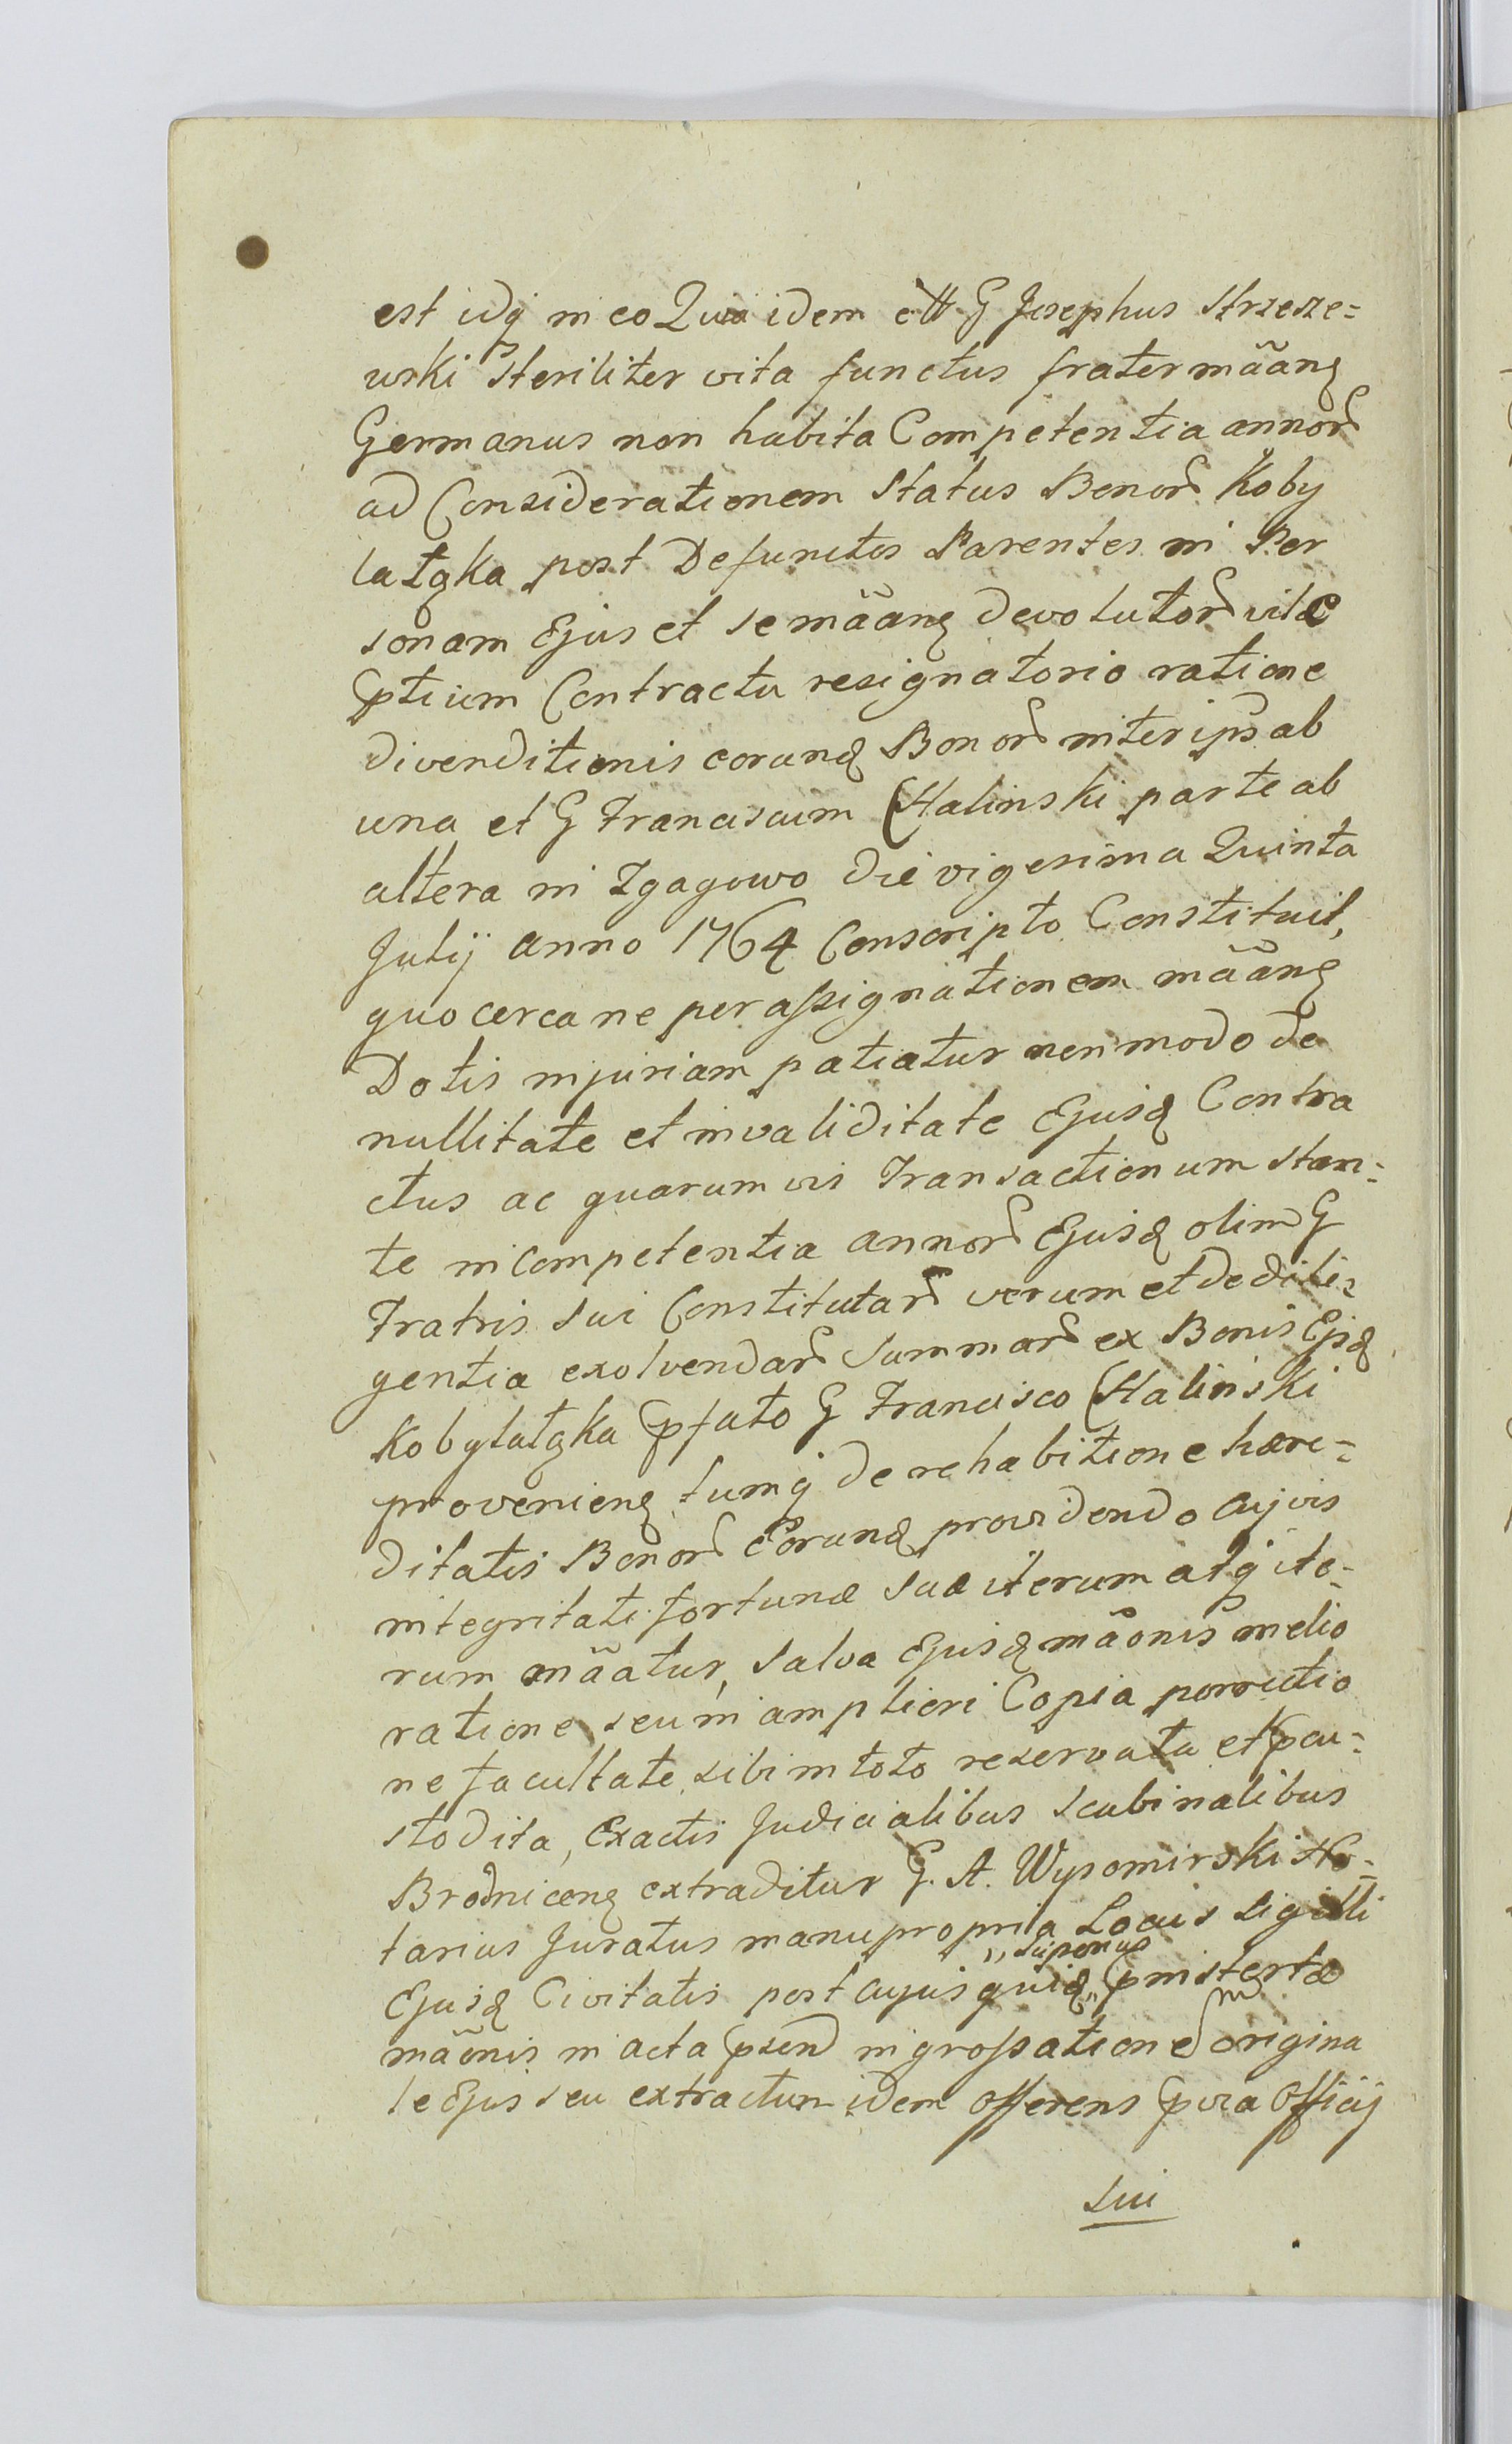 est idq in eo Quia idem ett G Josephus Strzesze=
wski Steriliter vita functus frater mãang
Germanus non habita Competentia annord
ad Considerationem Status Bonord Koby
latgka post Defunctos Parentes in Per
sonam Ejus et se mãang devolutord vitæ
ptium Contractu resignatorio ratione
divenditionis eorund Bonord inter ipsd ab
una et G Franciscum Chalinski parte ab
altera in Zgagowo die vigesima Quinta
Julij anno 1764 Conscripto Constituit,
quocerca ne per assignationem mãang
Dotis injuriam patiatur non modo de
nullitate et invaliditate Ejusd Contra
ctus ac quarumvis Transactionum stan=
te incompetentia annord Ejusd olim G
Fratris sui Constitutard verum et de dili=
gentia exolvendard Summard ex Bonis Ejsd
Kobylatgka pfato G Francisco Chalinski
provenieng tumq de rehabitione hære=
ditatis Bonord Eorund providendo cujvis
integritati fortunæ suæ iterum atq ite=
rum mãatur, salva Ejusd mãonis melio
ratione seu in ampliori Copia porrectio
ne facultate sibi in toto reservata et pcu=
stodita, Ex actis Judicialibus Scabinalibus
Brodniceng extraditur G. A. Wysomirski No=
tarius Juratus manu propria Locus Sigilli
Ejusd Civitatis post cujus quid " superius " pinstertæ
mãonis in acta psend ingrossationem origina
le Ejus seu extractum idem offerens pvia Officij
sui